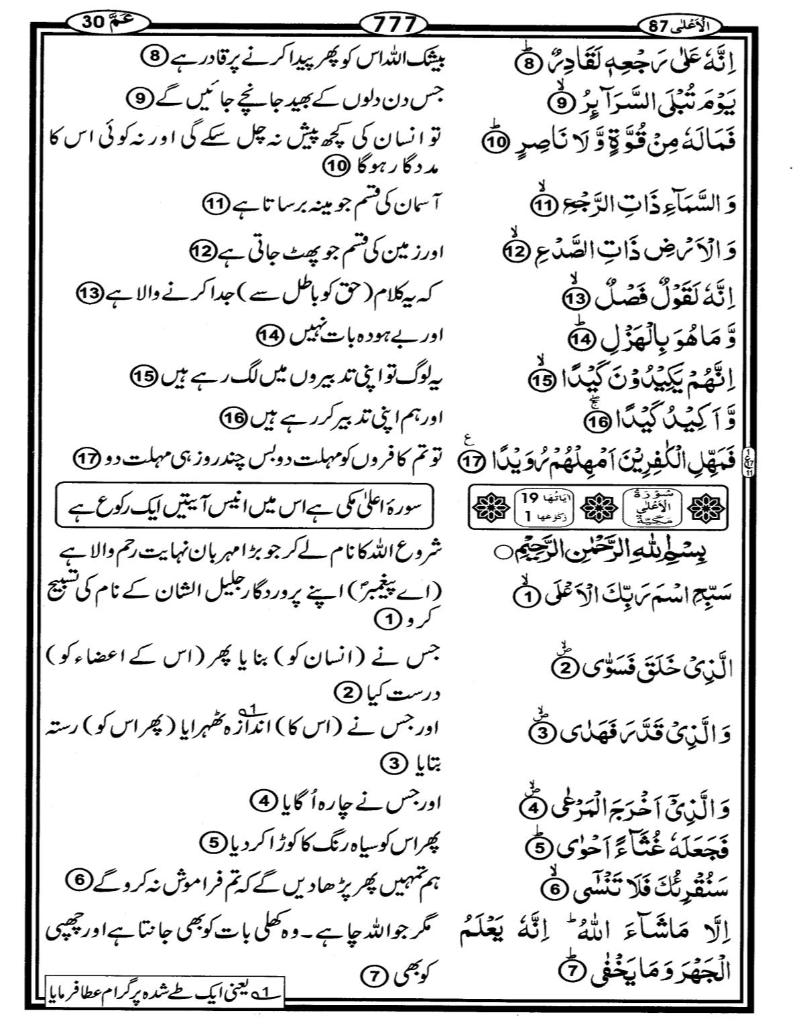 الاعلى 87
777
عمّ 30
اِنَّهٗ عَلٰى رَجْعِهٖ لَقَادِرٌ ؕ 8
بیشک اللہ اس کو پھر پیدا کرنے پر قادر ہے 8
يَوْمَ تُبْلَى السَّرَآئِرُ ۙ 9
جس دن دلوں کے بھید جانچے جائیں گے 9
فَمَا لَهٗ مِنْ قُوَّةٍ وَّلَا نَاصِرٍ ؕ 10
تو انسان کی کچھ پیش نہ چل سکے گی اور نہ کوئی اس کا
مددگار ہوگا 10
وَالسَّمَآءِ ذَاتِ الرَّجْعِ ۙ 11
آسمان کی قسم جو مینہ برساتا ہے 11
وَالْاَرْضِ ذَاتِ الصَّدْعِ ۙ 12
اور زمین کی قسم جو پھٹ جاتی ہے 12
اِنَّهٗ لَقَوْلٌ فَصْلٌ ۙ 13
کہ یہ کلام (حق کو باطل سے) جدا کرنے والا ہے 13
وَّمَا هُوَ بِالْهَزْلِ ؕ 14
اور بے ہودہ بات نہیں 14
اِنَّهُمْ يَكِيْدُوْنَ كَيْدًا ۙ 15
یہ لوگ تو اپنی تدبیروں میں لگ رہے ہیں 15
وَّاَكِيْدُ كَيْدًا ۚ 16
اور ہم اپنی تدبیر کر رہے ہیں 16
فَمَهِّلِ الْكٰفِرِيْنَ اَمْهِلْهُمْ رُوَيْدًا 17 ع
تو تم کافروں کو مہلت دو بس چند روز ہی مہلت دو 17
سُوْرَةُ الْاَعْلٰى مَكِّيَّةٌ
اٰيَاتُهَا 19
رُكُوْعُهَا 1
سورۂ اعلیٰ مکی ہے اس میں انیس آیتیں ایک رکوع ہے
بِسْمِ اللّٰهِ الرَّحْمٰنِ الرَّحِيْمِ
شروع اللہ کا نام لے کر جو بڑا مہربان نہایت رحم والا ہے
سَبِّحِ اسْمَ رَبِّكَ الْاَعْلَى ۙ 1
(اے پیغمبرؐ) اپنے پروردگار جلیل الشان کے نام کی تسبیح
کرو 1
الَّذِيْ خَلَقَ فَسَوّٰى ۙ 2
جس نے (انسان کو) بنایا پھر (اس کے اعضاء کو)
درست کیا 2
وَالَّذِيْ قَدَّرَ فَهَدٰى ۙ 3
اور جس نے (اس کا) اندازہ ٹھہرایا 1؎ (پھر اس کو) رستہ
بتایا 3
وَالَّذِيْۤ اَخْرَجَ الْمَرْعٰى ۙ 4
اور جس نے چارہ اُگایا 4
فَجَعَلَهٗ غُثَآءً اَحْوٰى ؕ 5
پھر اس کو سیاہ رنگ کا کوڑا کر دیا 5
سَنُقْرِئُكَ فَلَا تَنْسٰٓى ۙ 6
ہم تمہیں پھر پڑھا دیں گے کہ تم فراموش نہ کرو گے 6
اِلَّا مَا شَآءَ اللّٰهُ ؕ اِنَّهٗ يَعْلَمُ
مگر جو اللہ چاہے۔ وہ کھلی بات کو بھی جانتا ہے اور چھپی
الْجَهْرَ وَمَا يَخْفٰى ؕ 7
کو بھی 7
1؎ یعنی ایک طے شدہ پرگرام عطا فرمایا